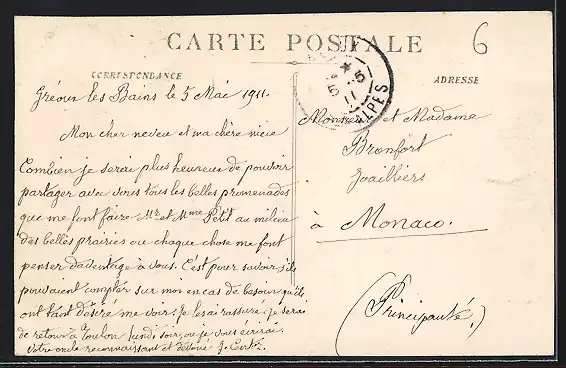 CARTE POSTALE
6
CORRESPONDANCE
ADRESSE
5-5
11
ALPES
Gréoux les Bains le 5 Mai 1911.
Mon cher neveu et ma chère nièce
Combien je serai plus heureux de pouvoir
partager avec vous tous les belles promenades
que me font faire Mr et Mme Petit au milieu
des belles prairies ou chaque chose me font
penser davantage à vous. C'est pour savoir s'ils
pouvaient compter sur moi en cas de besoin qu'ils
ont tant désiré me voir. Je les ai rassuré, je serai
de retour à Toulon lundi soir, ou je vous écrirai.
Votre oncle reconnaissant et dévoué J.
Monsieur et Madame
Bronfort
Joailliers
à Monaco.
(Principauté.)